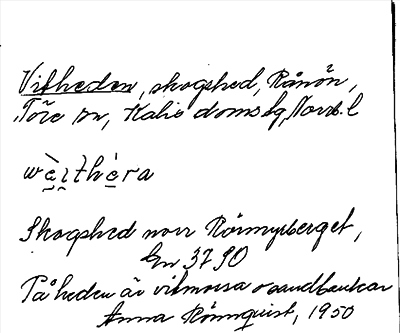 Vitheden, skogshed, Rånön,
Töre sn, Kalix domsg, Norrb. l
Skogshed norr Rörmyrberget,
En 37 SO
På heden är vitmossa o sandbackar
Anna Rönnquist, 1950